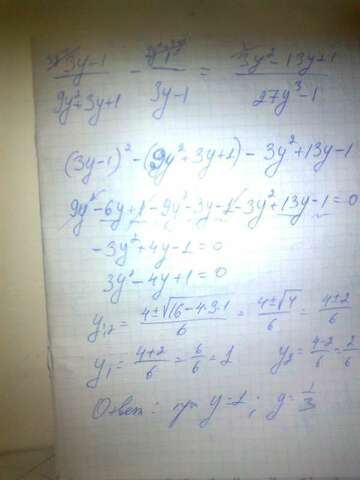 (3y-1)/(9y²+3y+1) - 1/(3y-1) = (3y²-13y+1)/(27y³-1)
(3y-1)² - (9y²+3y+1) - 3y²+13y-1
9y²-6y+1-9y²-3y-1-3y²+13y-1=0
-3y²+4y-1=0
3y²-4y+1=0
y₁,₂ = (4±√(16-4·3·1))/6 = (4±√4)/6 = (4±2)/6
y₁ = (4+2)/6 = 6/6 = 1 y₂ = (4-2)/6 = 2/6
Ответ: при y=1; y=1/3